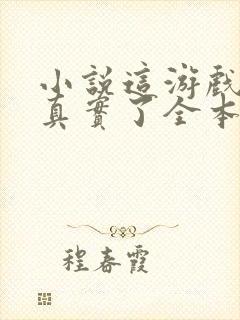 小說這游戲
真實了全本
程春霞